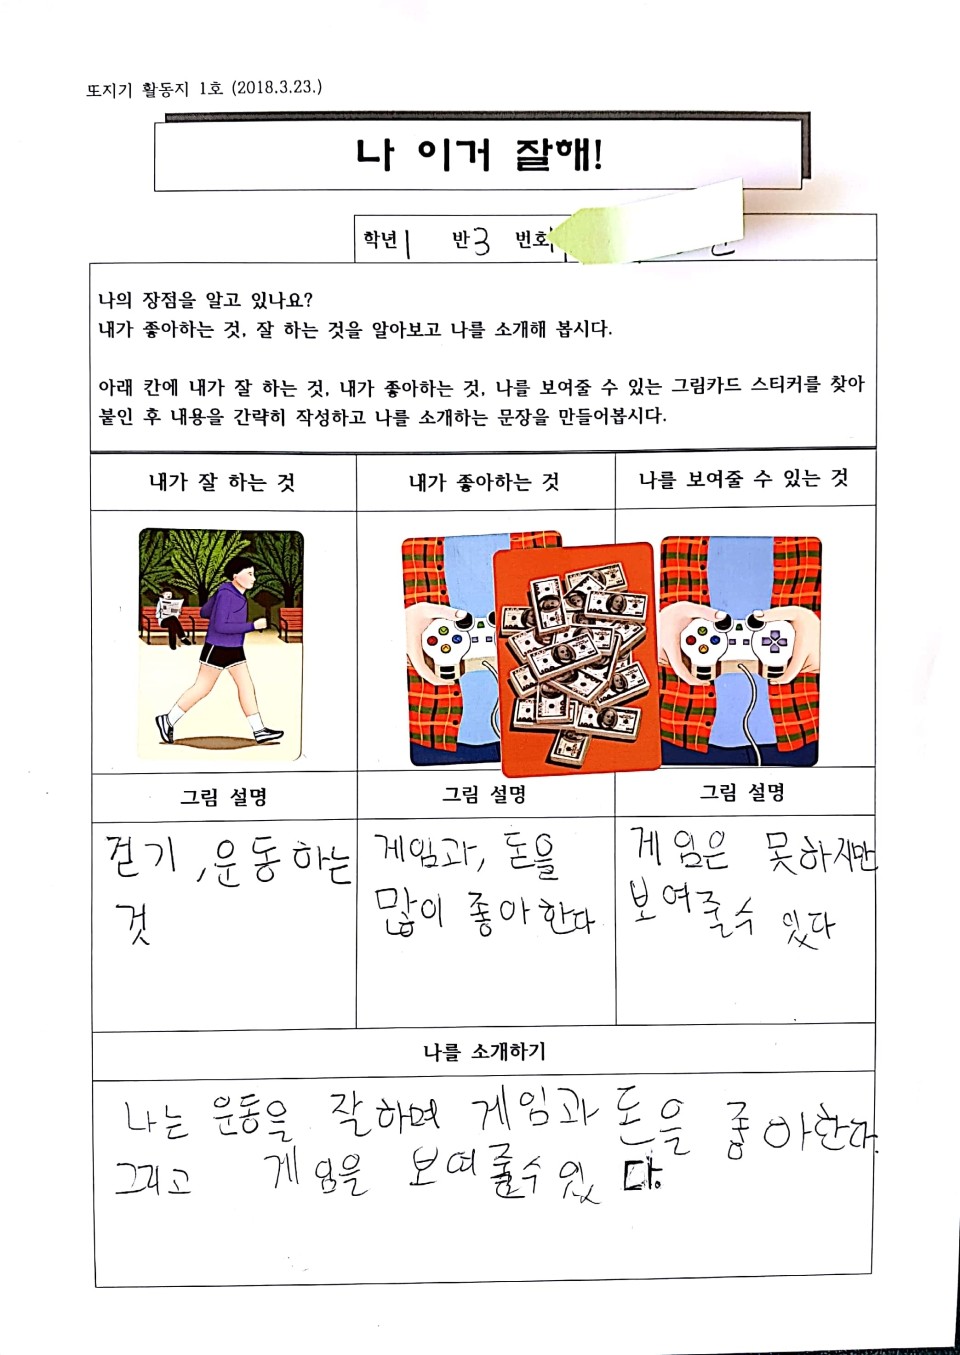 또지기 활동지 1호 (2018.3.23.)
나 이거 잘해!
학년 1 반 3 번호
나의 장점을 알고 있나요?
내가 좋아하는 것, 잘 하는 것을 알아보고 나를 소개해 봅시다.
아래 칸에 내가 잘 하는 것, 내가 좋아하는 것, 나를 보여줄 수 있는 그림카드 스티커를 찾아
붙인 후 내용을 간략히 작성하고 나를 소개하는 문장을 만들어봅시다.
내가 잘 하는 것
내가 좋아하는 것
나를 보여줄 수 있는 것
그림 설명
그림 설명
그림 설명
걷기, 운동하는
것
게임과, 돈을
많이 좋아한다
게임은 못하지만
보여줄수 있다
나를 소개하기
나는 운동을 잘하며 게임과 돈을 좋아한다.
그리고 게임을 보여줄수있다.